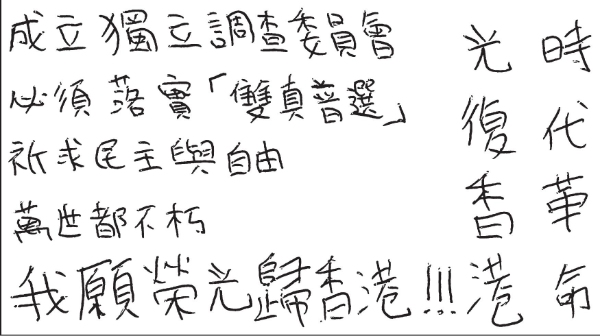 成立獨立調查委員會
必須落實「雙真普選」
祈求民主與自由
萬世都不朽
我願榮光歸香港!!!
光復香港
時代革命